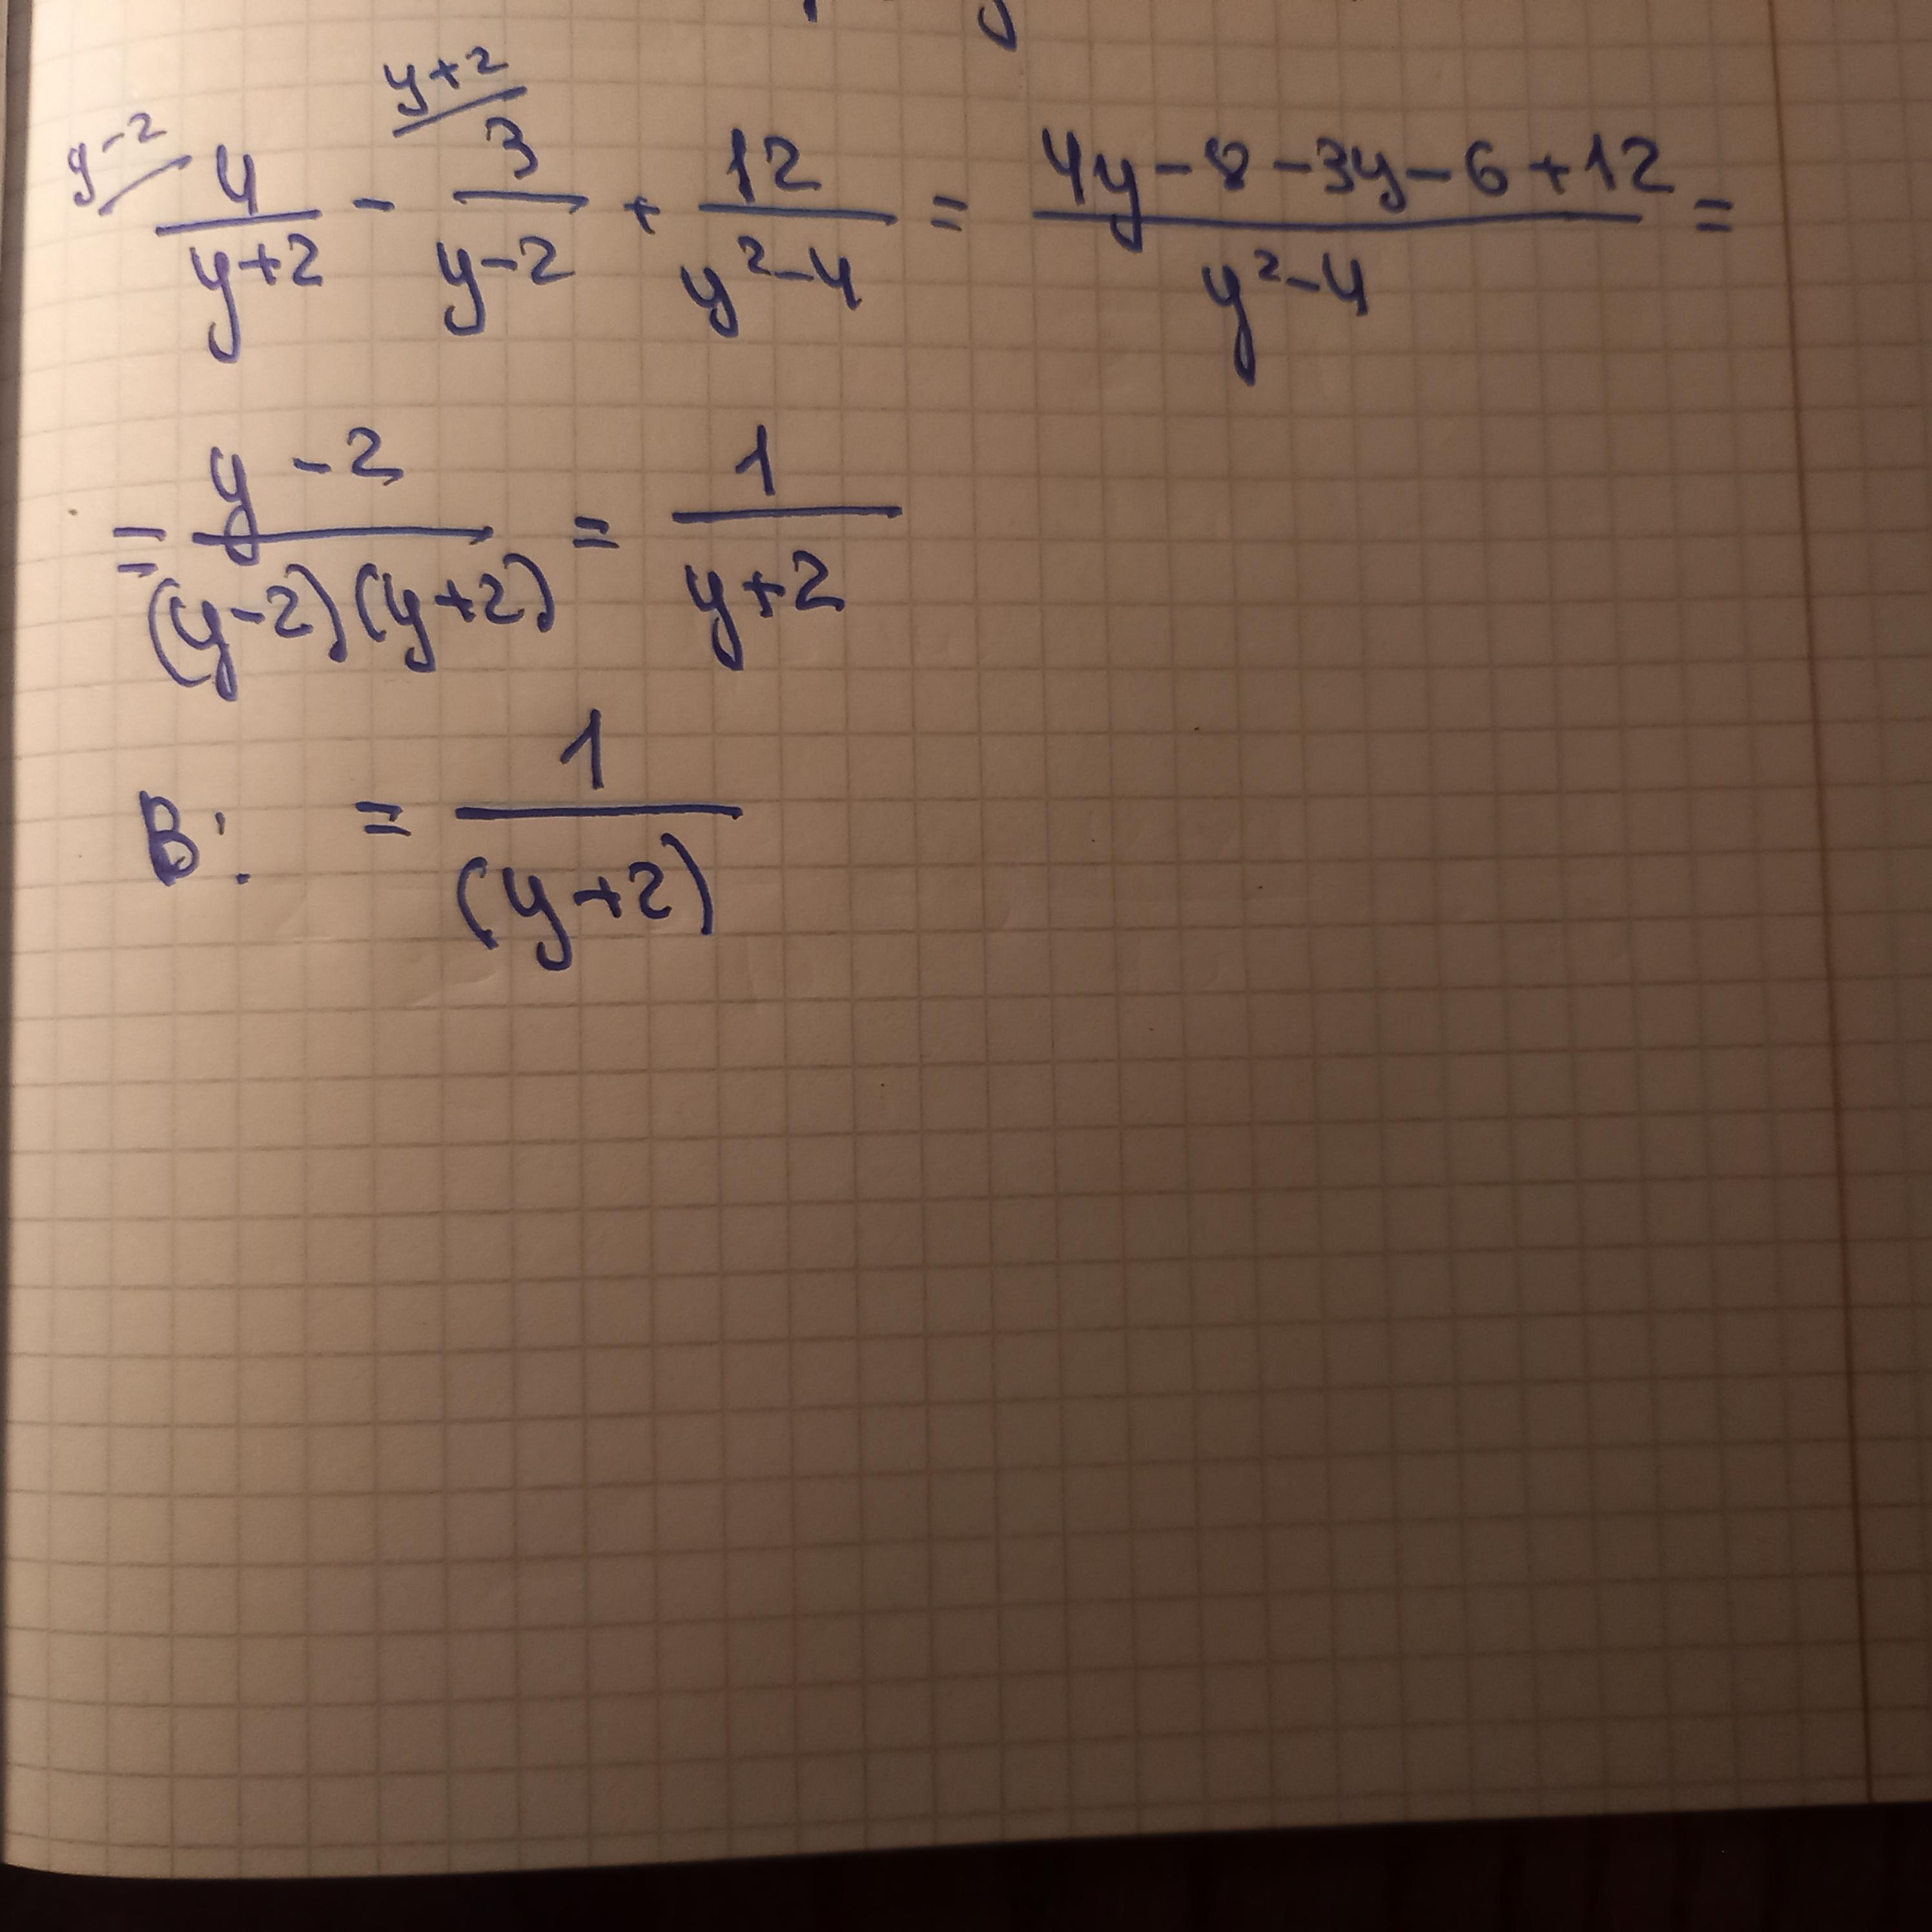 y-2/ 4/(y+2) - y+2/ 3/(y-2) + 12/(y²-4) = (4y-8-3y-6+12)/(y²-4) =
= (y-2)/((y-2)(y+2)) = 1/(y+2)
B: = 1/(y+2)